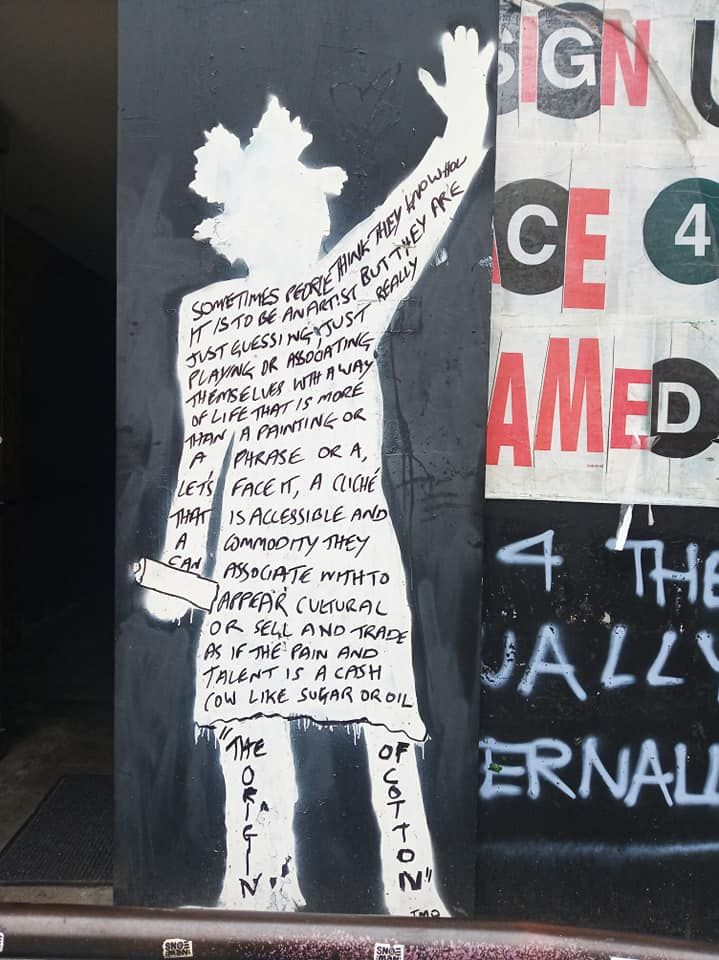 SOMETIMES PEOPLE THINK THEY KNOW HOW
IT IS TO BE AN ARTIST BUT THEY ARE
JUST GUESSING, JUST REALLY
PLAYING OR ASSOCIATING
THEMSELVES WITH A WAY
OF LIFE THAT IS MORE
THAN A PAINTING OR
A PHRASE OR A,
LETS FACE IT, A CLICHÉ
THAT IS ACCESSIBLE AND
A COMMODITY THEY
CAN ASSOCIATE WITH TO
APPEAR CULTURAL
OR SELL AND TRADE
AS IF THE PAIN AND
TALENT IS A CASH
COW LIKE SUGAR OR OIL
"THE ORIGIN
OF COTTON"
SIGN U
CE 4
AMED
4 THE
UALLY
ERNALL